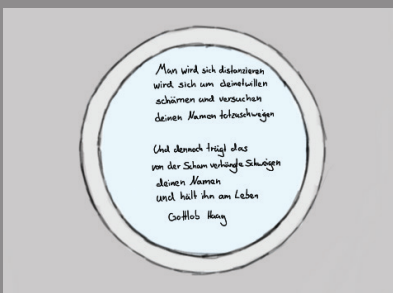 Man wird sich distanzieren
wird sich um deinetwillen
schämen und versuchen
deinen Namen totzuschweigen
Und dennoch trägt das
von der Scham verhängte Schweigen
deinen Namen
und hält ihn am Leben
Gottlob Haag